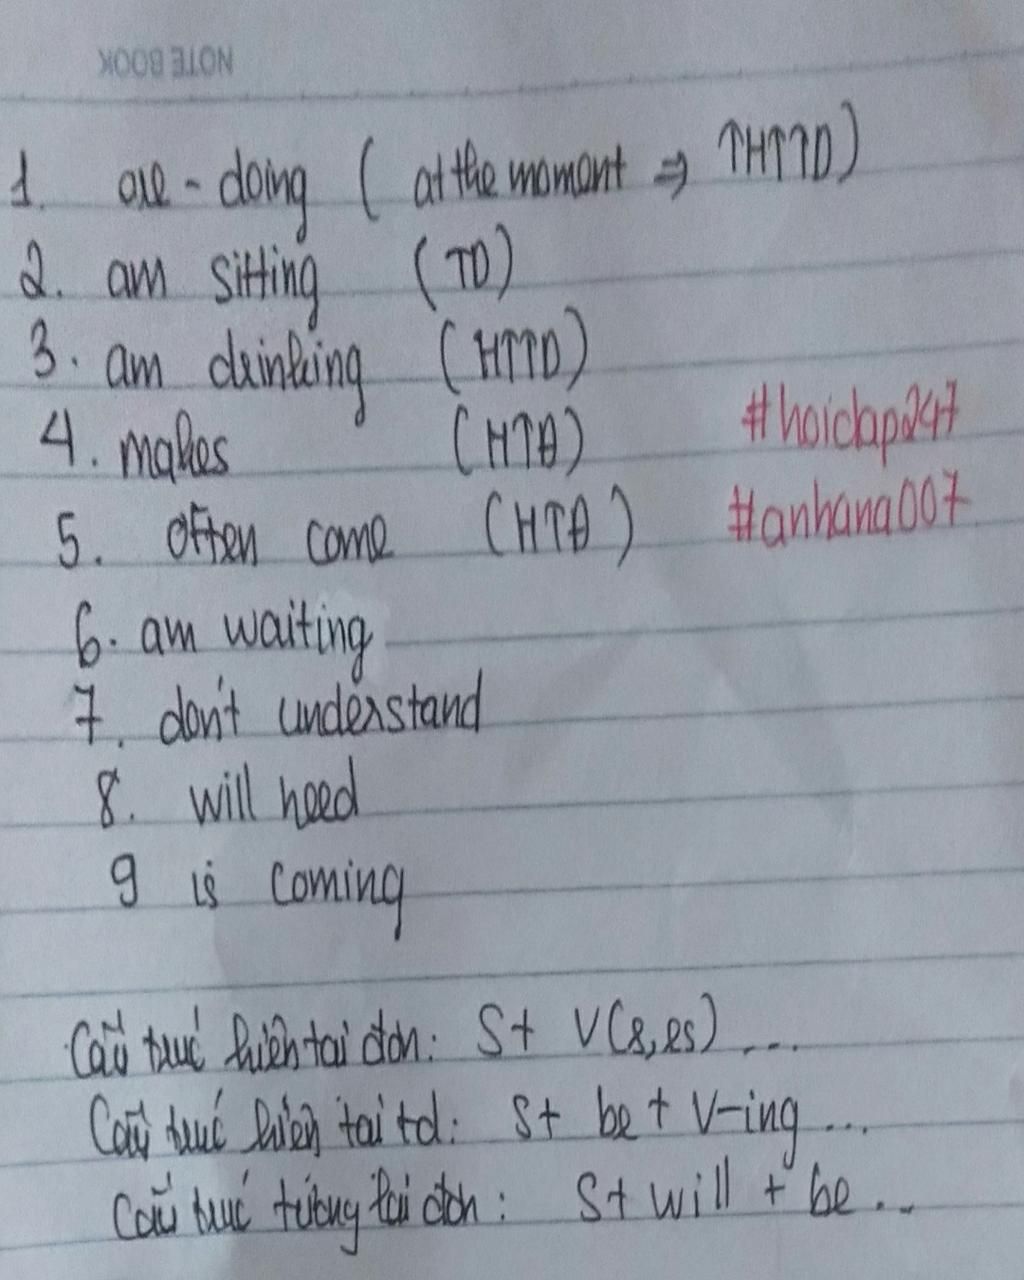 NOTE BOOK
1. are - doing ( at the moment => THTTD)
2. am sitting (TD)
3. am drinking (HTTD)
4. makes (HTĐ)
#hoidap247
5. often come (HTĐ)
#anhana007
6. am waiting
7. don't understand
8. will need
9 is coming
Cấu trúc hiện tại đơn: S+ V(s,es)...
Cấu trúc hiện tại td: S+ be + V-ing...
Cấu trúc tương lai đơn: S+ will + be...